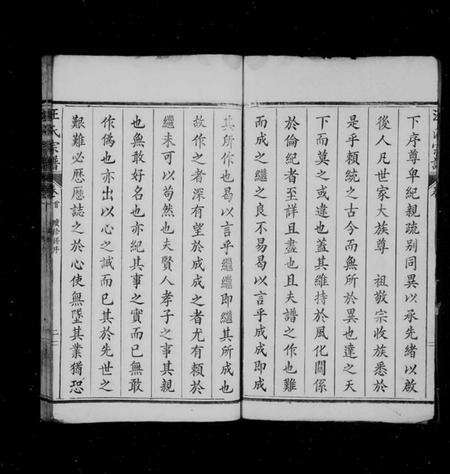 下序尊卑紀親疏別同異以承先緒以啟
後人凡世家大族尊 祖敬宗收族悉於
是乎賴統之古今而無所於異也達之天
下而莫之或違也蓋其維持於風化關係
於倫紀者至詳且盡也且夫譜之作也難
而成之繼之良不易曷以言乎成成即成
其所作也曷以言乎繼繼即繼其所成也
故作之者深有望於成成之者尤有賴於
繼未可以苟然也夫賢人孝子之事其親
也無敢好名也亦紀其事之實而已無敢
作偽也亦出以心之誠而已其於先世之
艱難必歷歷誌之於心使無墜其業猶恐
汪氏宗譜 卷首
二